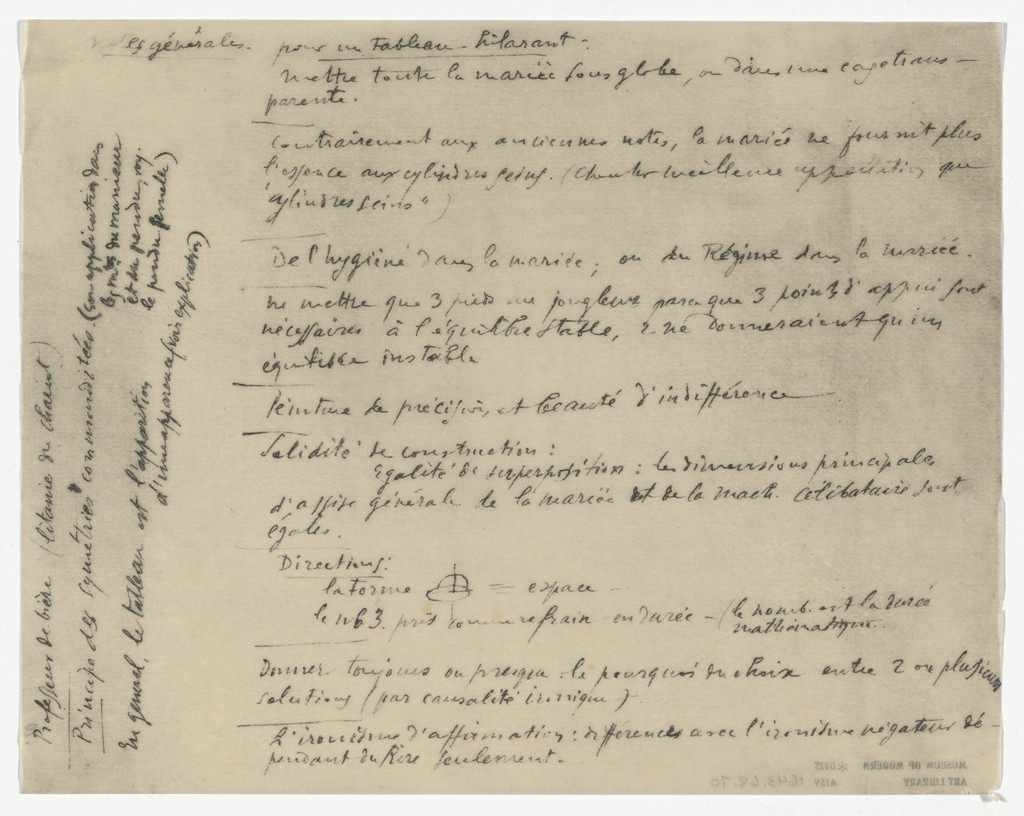 Notes générales. pour un tableau hilarant.
mettre toute la mariée sous globe, ou dans une cage trans-
parente.
Contrairement aux anciennes notes, la mariée ne fournit plus
l'essence aux cylindres seins. (Chercher meilleure appellation que
"cylindres seins")
De l'hygiène dans la mariée; ou du Régime dans la mariée.
ne mettre que 3 pieds au jongleur parce que 3 points d'appui sont
nécessaires à l'équilibre stable, 2 ne donneraient qu'un
équilibre instable
Peinture de précision, et beauté d'indifférence
Solidité de construction:
Egalité de superposition: les dimensions principales
d'assise générale de la mariée et de la mach. célibataire sont
égales.
Directions:
la forme = espace
le nb 3. pris comme refrain en durée - (le nomb. est la durée
mathématique.
Donner toujours ou presque le pourquoi du choix entre 2 ou plusieurs
solutions (par causalité ironique)
L'ironisme d'affirmation: différences avec l'ironisme négateur dé-
pendant du Rire seulement.
Professeur de bière (litanie du Chariot)
Principe des symétries commanditées. (son application dans
les du manieur
et du pendu, voy.
le pendu femelle)
En général, le tableau est l'apparition
d'une apparence (voir explication)
MUSEUM OF MODERN
ART LIBRARY
1643.68.70